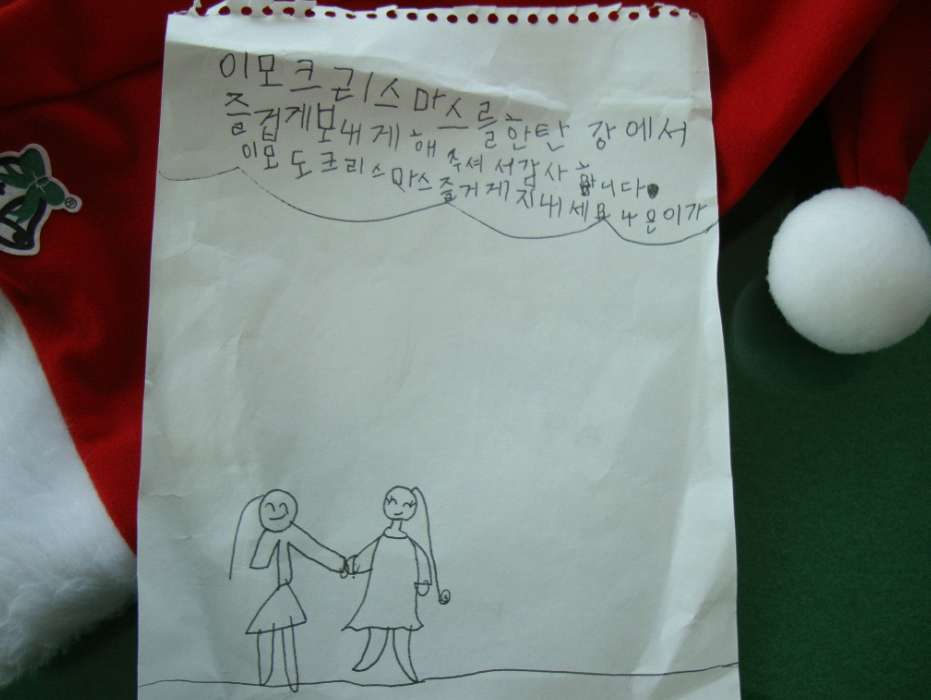 이모 크리스마스를 한탄 강에서
즐겁게보내게 해 주셔서감사 합니다.
이모 도 크리스마스즐거게 지내세요 나은이가
®